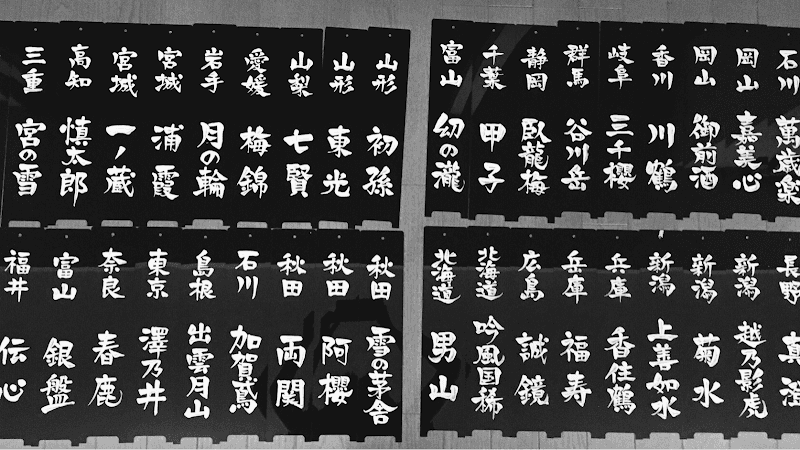 石川 萬歳楽
岡山 嘉美心
岡山 御前酒
香川 川鶴
岐阜 三千櫻
群馬 谷川岳
静岡 臥龍梅
千葉 甲子
富山 幻の瀧
山形 初孫
山形 東光
山梨 七賢
愛媛 梅錦
岩手 月の輪
宮城 浦霞
宮城 一ノ蔵
高知 慎太郎
三重 宮の雪
長野 真澄
新潟 越乃影虎
新潟 菊水
新潟 上善如水
兵庫 香住鶴
兵庫 福寿
広島 誠鏡
北海道 吟風国稀
北海道 男山
秋田 雪の茅舎
秋田 阿櫻
秋田 両関
石川 加賀鳶
島根 出雲月山
東京 澤乃井
奈良 春鹿
富山 銀盤
福井 伝心